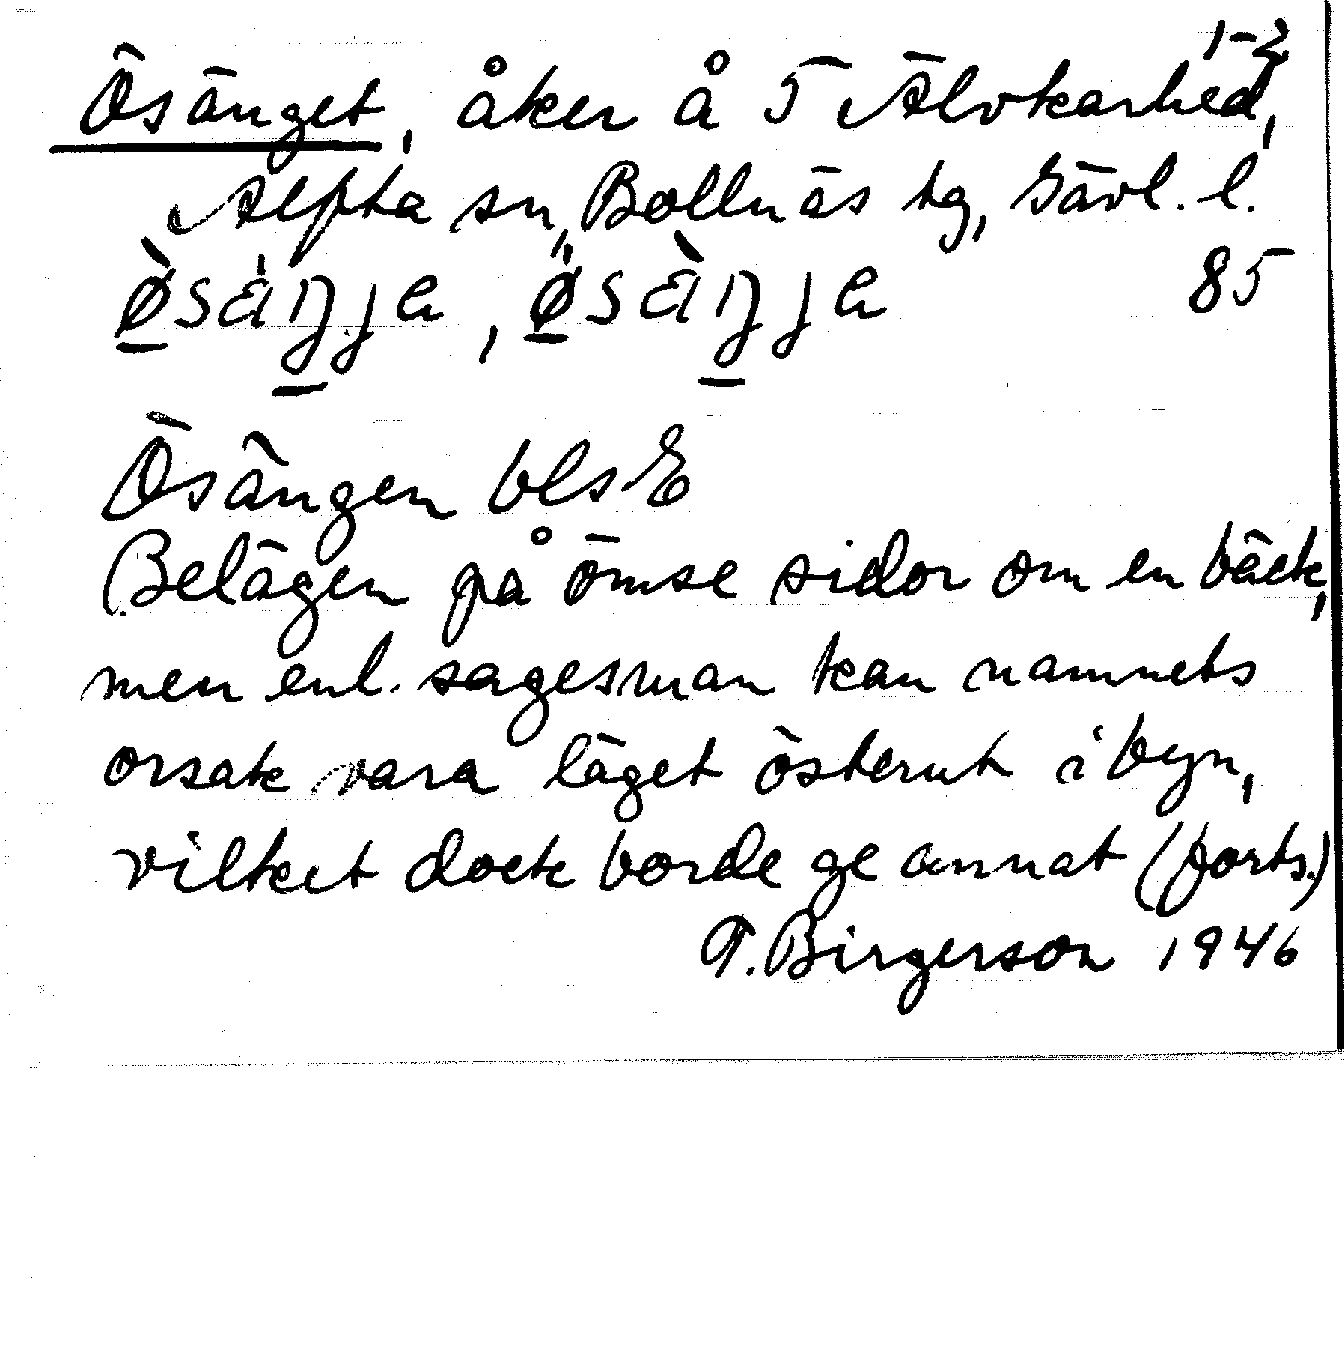 1-2
Ösänget, åker å 5 Älvkarhed,
Alfta sn, Bollnäs tg, Gävl. l.
85
Ösängen bls E
Belägen på ömse sidor om en bäck,
men enl. sagesman kan namnets
orsak vara läget österut i byn,
vilket dock borde ge annat (forts.)
T. Birgerson 1946